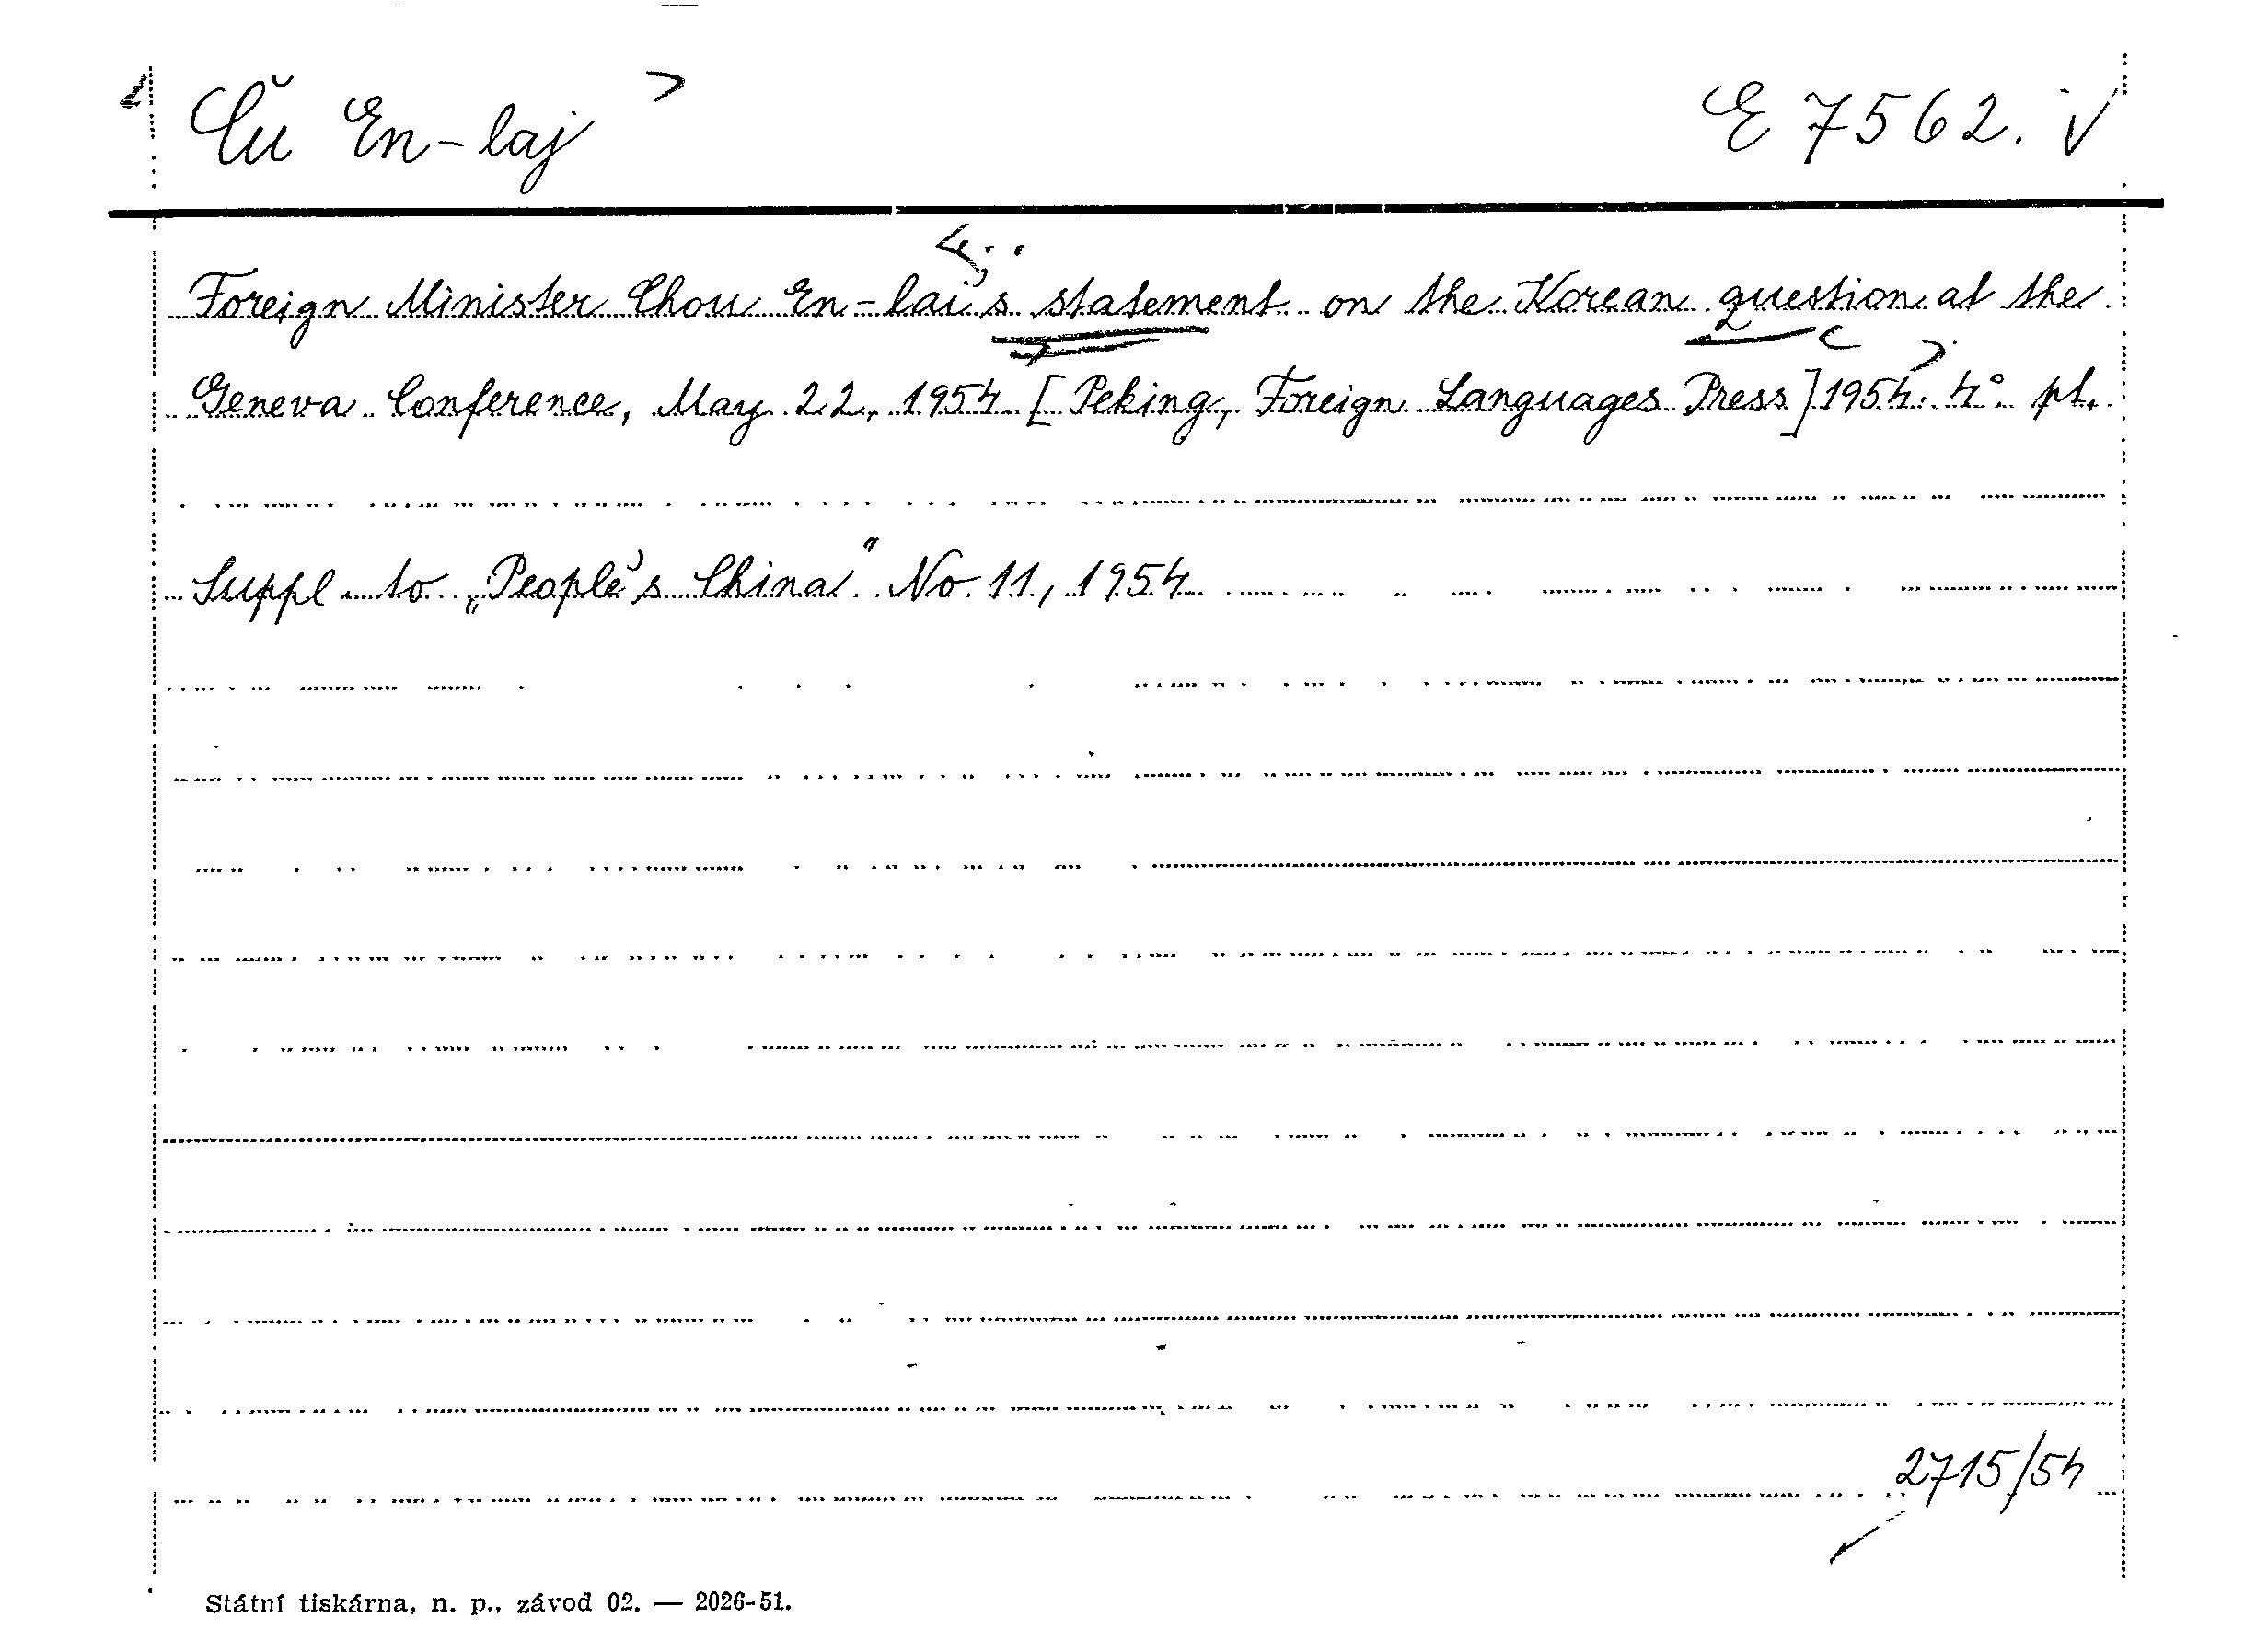 Ču En-laj
E 7562.
Foreign Minister Chou En-lai's statement on the Korean question at the
Geneva Conference, May 22, 1954. [Peking, Foreign Languages Press] 1954. 4° pt.
Suppl. to „People's China" No 11, 1954
2715/54
Státní tiskárna, n. p., závod 02. — 2026-51.